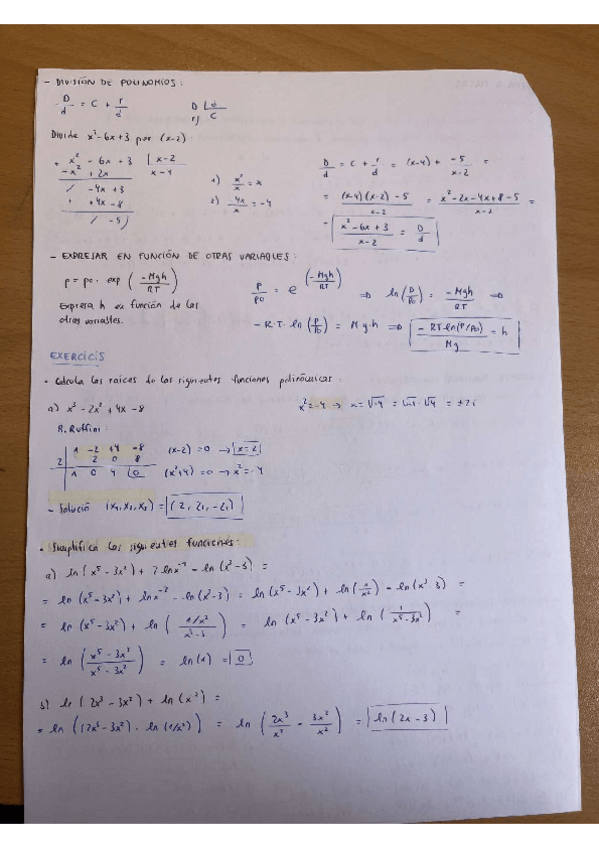 - DIVISIÓN DE POLINOMIOS:
D/d = C + r/d    D |d    r) C
Divide x²-6x+3 por (x-2):
+ x² - 6x + 3 |x-2
-x² + 2x    x-4
/ -4x + 3
+ +4x - 8
/ -5)
1) x²/x = x
2) -4x/x = -4
D/d = C + r/d = (x-4) + -5/x-2 =
= (x-4)(x-2) - 5/x-2 = x²-2x-4x+8-5/x-2 =
= x²-6x+3/x-2 = D/d
- EXPRESAR EN FUNCIÓN DE OTRAS VARIABLES:
p = p0 · exp (-Mgh/RT)
Expresa h en función de las
otras variables.
P/P0 = e^(-Mgh/RT) ⇒ ln(P/P0) = -Mgh/RT ⇒
-R·T·ln(P/P0) = M·g·h ⇒ -RT·ln(P/P0)/Mg = h
EXERCICIS
· Calcula las raíces de las siguientes funciones polinómicas:
a) x³ - 2x² + 4x - 8
x²=-4 → x=√-4 = √-1 · √4 = ±2i
R. Ruffini:
1 -2 +4 -8
2| 2 0 8
1 0 4 |0
(x-2)=0 → x=2
(x²+4)=0 → x²=-4
- Solució (x1,x2,x3) = (2, 2i, -2i)
· Simplifica las siguientes funciones:
a) ln(x⁵-3x²) + 2lnx⁻¹ - ln(x³-3) =
= ln(x⁵-3x²) + lnx⁻² - ln(x³-3) = ln(x⁵-3x²) + ln(1/x²) - ln(x³-3) =
= ln(x⁵-3x²) + ln(1/x²/x³-3) = ln(x⁵-3x²) + ln(1/x⁵-3x²) =
= ln(x⁵-3x²/x⁵-3x²) = ln(1) = 0
b) ln(2x³-3x²) + ln(x⁻²) =
= ln((2x³-3x²) · ln(1/x²)) = ln(2x³/x² - 3x²/x²) = ln(2x-3)